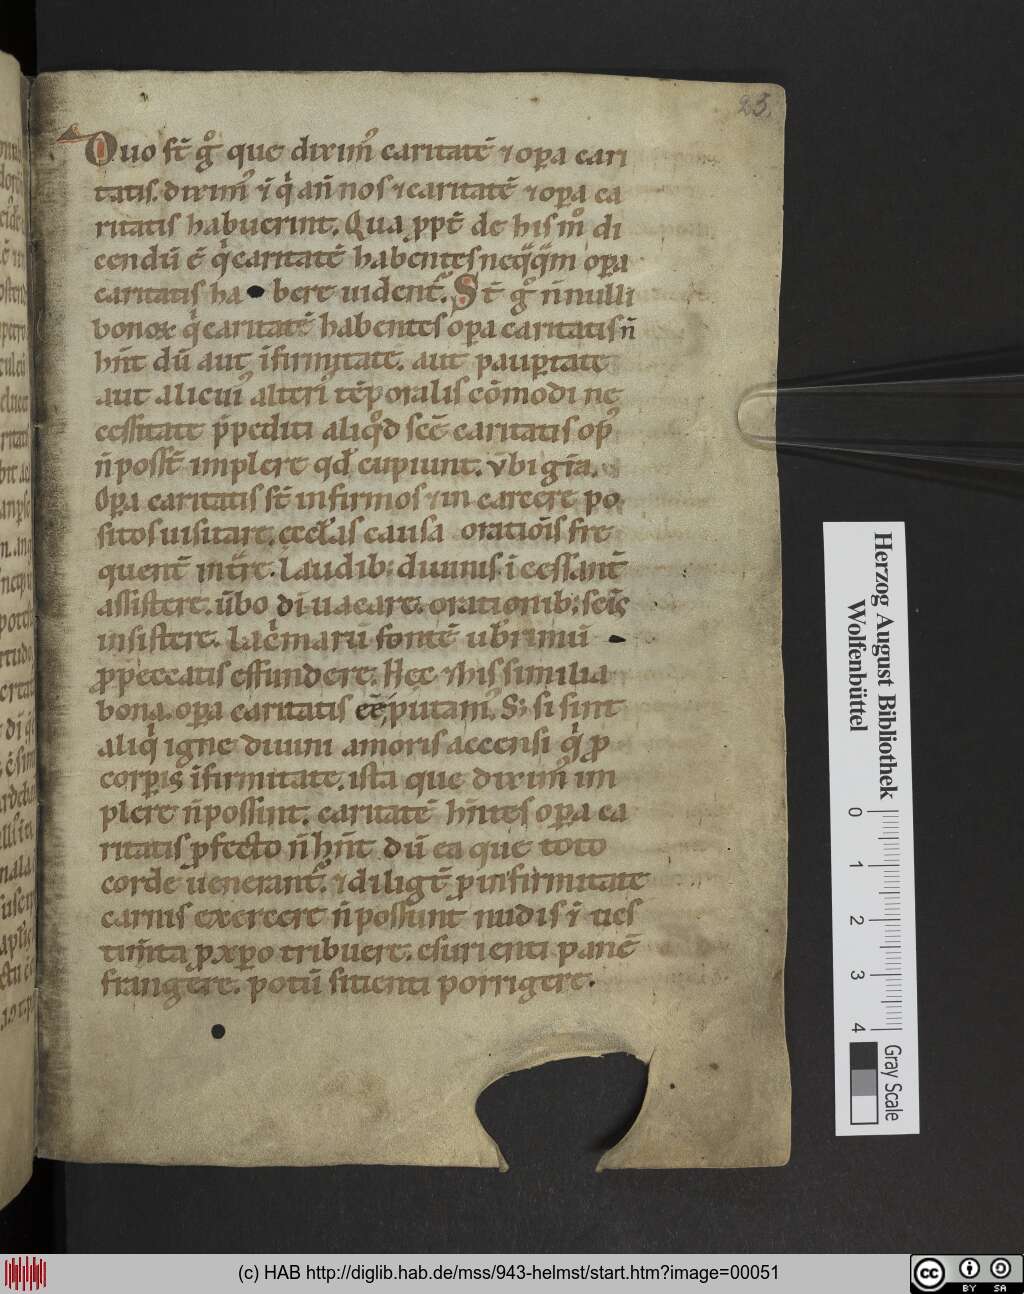 25.
Quo st̄ gͦ que dixim᷒ caritatē ⁊ oꝑa cari
tatis. dixim᷒ ī q̇ an̄ nos ⁊ caritatē ⁊ oꝑa ca
ritatis habuerint. Qua ꝓpt̄ de his mͦ di
cendū ē q̇ caritatē habentes oꝑa
caritatis ha bere uident᷑. St̄ gͦ n̄nulli
bonoꝝ q̇ caritatē habentes oꝑa caritatis n̄
hn̄t dū aut īfirmitate. aut pauꝑtate
aut alicui᷒ alteri᷒ tēporalis cōmodi ne
cessitate p̄pediti aliqͦd scē caritatis op᷒
n̄ possē implere qd̄ cupiunt. vbi gr̄a.
Oꝑa caritatis st̄ infirmos ⁊ in carcere po
sitos uisitare. eccłas causa orationis fre
quent̄ intrare. Laudib; diuinis īcessant̄
assistere. ūbo di uacare. orationib; scīs
insistere. lacrimarū fontē ub̄rimū
ꝓ peccatis effundere. Hec ⁊ his similia
bona. oꝑa caritatis eē putam᷒. S; si sint
aliq̇ igne diuini amoris accensi q̇ ꝓ
corꝑis īfirmitate. ista que dixim᷒ im
plere n̄ possint. caritatē hn̄tes oꝑa ca
ritatis ꝓfecto n̄ hn̄t dū ea que toto
corde uenerant᷑. ⁊ diligt̄ p̱ infirmitate
carnis exercere n̄ possunt nudis ī ues
tim̄ta ꝓ xp̄o tribuere. esurienti panē
frangere. potū sitienti porrigere.
Herzog August Bibliothek
Wolfenbüttel
0 1 2 3 4
Gray Scale
(c) HAB http://diglib.hab.de/mss/943-helmst/start.htm?image=00051
cc BY SA